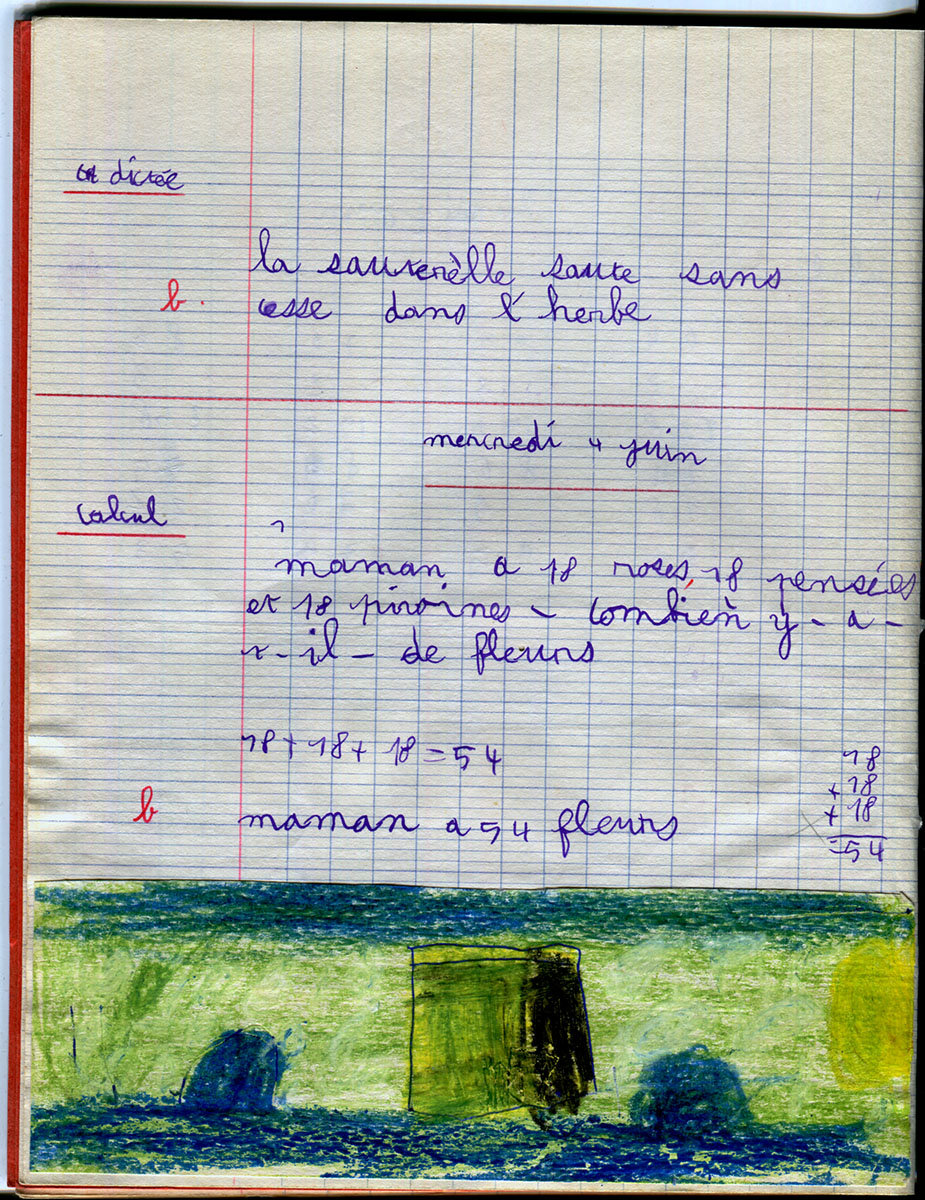 dictée
la sauterèlle saute sans
b. cesse dans l'herbe
mercredi 4 juin
calcul
maman a 18 roses, 18 pensées
et 18 pivoines - combien y-a-
t-il- de fleurs
18+18+18=54
18
+18
+18
=54
b maman a 54 fleurs